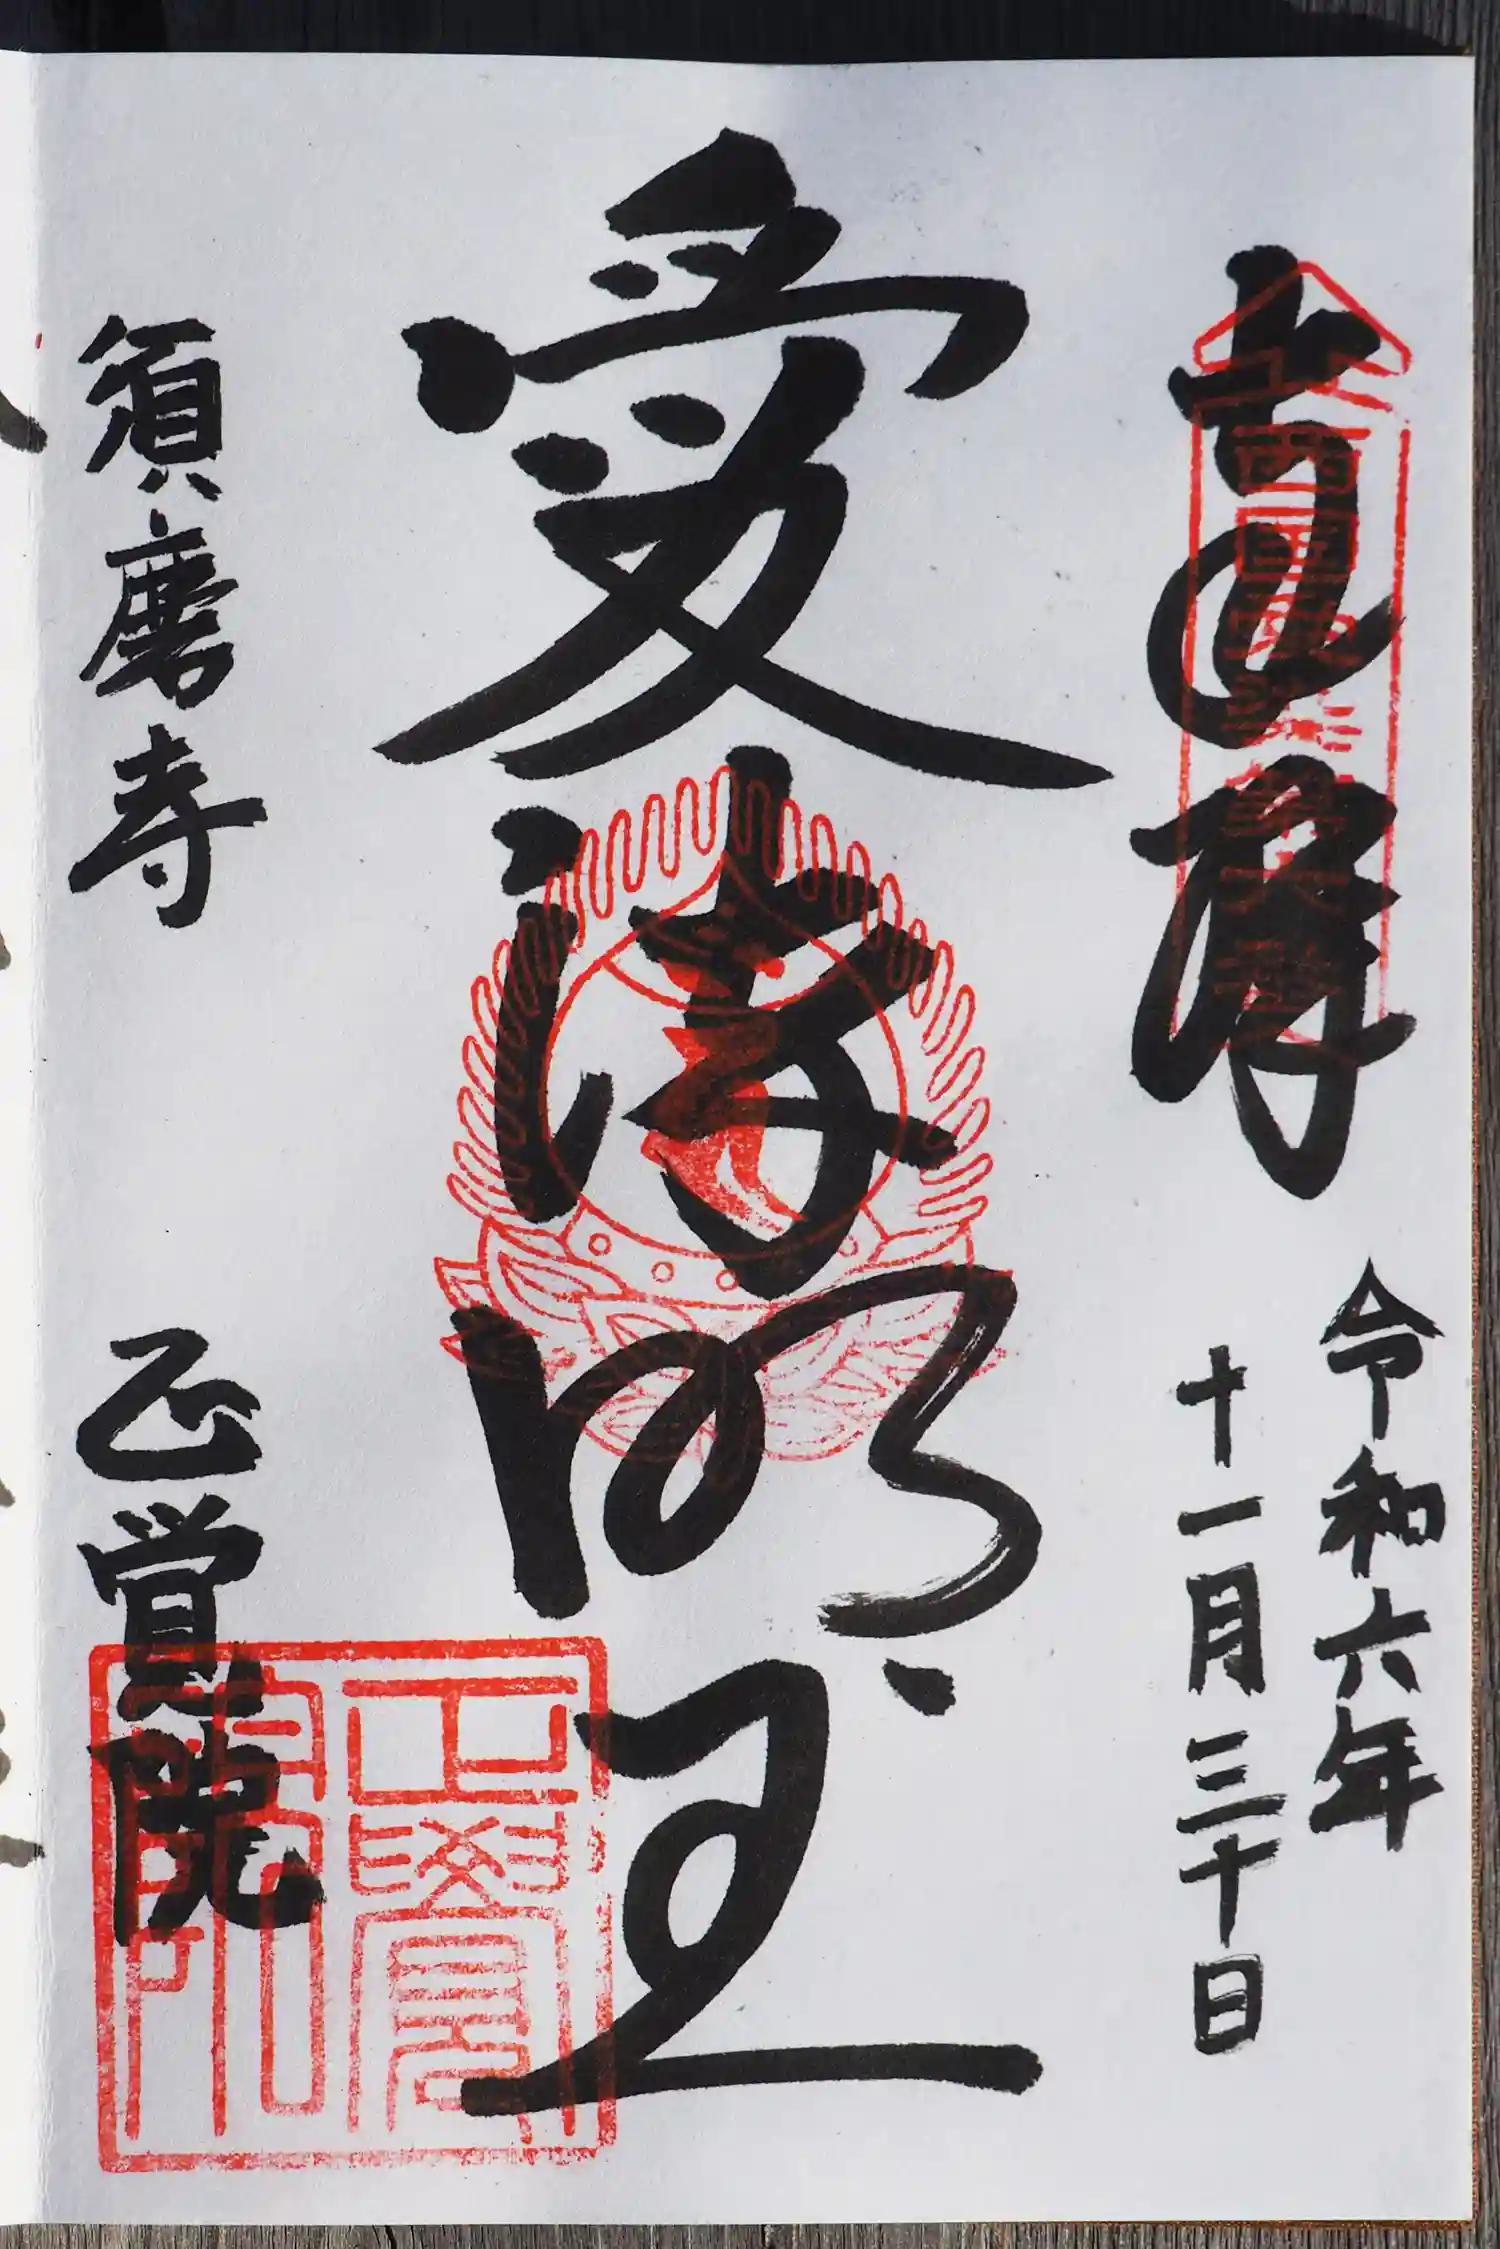 奉拝
令和六年
十一月三十日
愛染明王
須磨寺
正覚院